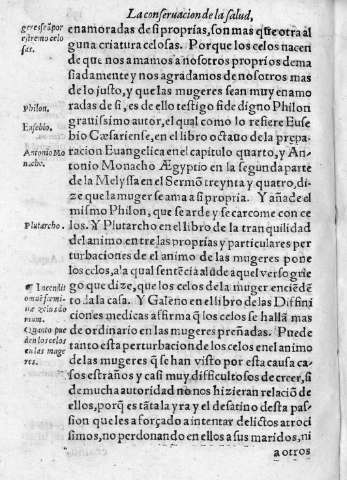 La conseruacion de la salud,
geres së por
estremo celo
sas.
enamoradas de si proprias, son mas que otra al
guna criatura celosas. Porque los celos nacen
de que nos amamos a nosotros proprios dema
siadamente y nos agradamos de nosotros mas
de lo justo, y que las mugeres sean muy enamo
radas de si, es de ello testigo fide digno Philon
Philon.
grauissimo autor, el qual como lo refiere Euse
Eusebio.
bio Cæsariense, en el libro octauo de la prepa
racion Euangelica en el capitulo quarto, y An-
Antonio Mo
nacho.
tonio Monacho Ægyptio en la segunda parte
de la Melyssa en el Sermõ treynta y quatro, di-
ze que la muger se ama a si propria. Y añade el
mismo Philon, que se arde y se carcome con ce
Plutarcho.
los. Y Plutarcho en el libro de la tranquilidad
del animo entre las proprias y particulares per
turbaciones de el animo de las mugeres pone
los celos, a la qual sentēcia alude aquel verso grie
go que dize, que los celos de la muger enciendē
toda la casa. Y Galeno en el libro de las Diffini
ciones medicas affirma q̃ los celos se hallã mas
de ordinario en las mugeres preñadas. Puede
Quanto pue
den los celos
en las muge
res.
tanto esta perturbacion de los celos en el animo
de las mugeres q̃ se han visto por esta causa ca
sos estraños y casi muy difficultosos de creer, si
de mucha autoridad no nos hizieran relaciō de
ellos, porq̃ es tãta la yra y el desatino desta pas
sion que les a forçado a intentar delictos atroci
simos, no perdonando en ellos a sus maridos, ni
a otros